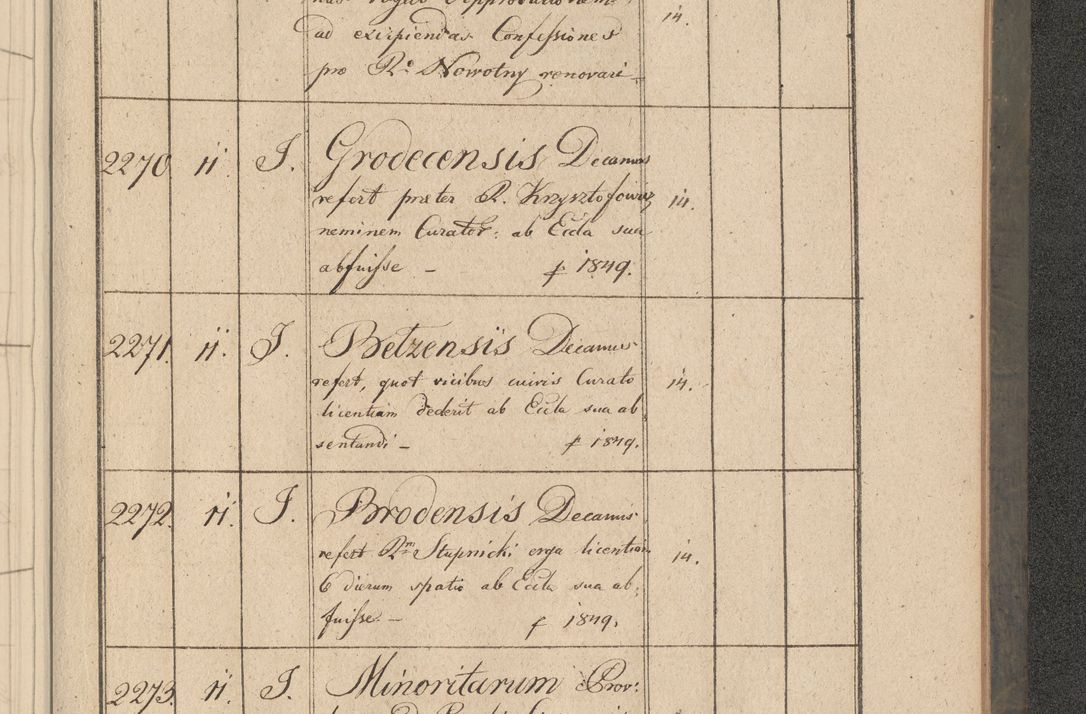 ad excipiendas Confessiones 14.
pro R. Nowotny renovari –
2270 11. J. Grodecensis Decanus
refert præter R. Krzysztofowicz 14.
neminem Curator: ab Eccla sua
abfuisse – p 1849.
2271. 11. J. Betzensis Decanus
refert, quot vicibus cuivis Curato 14.
licentiam dederit ab Eccla sua ab
sentandi – p 1849.
2272. 11. J. Brodensis Decanus
refert Rm Stupnicki erga licentiam 14.
6 dierum spatio ab Eccla sua ab,
fuisse – p 1849.
2273. 11. J. Minoritarum Prov: